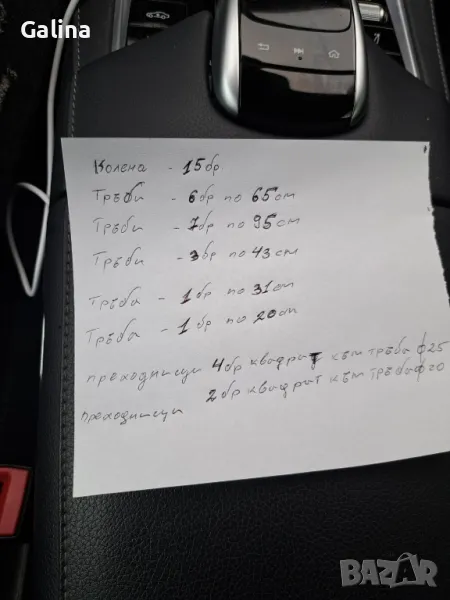 Galina
Колена - 15бр
Тръби - 6бр по 65см
Тръби - 7бр по 95см
Тръби - 3бр по 43см
Тръба - 1бр по 31см
Тръба - 1бр по 20см
преходници 4бр квадрат към тръба ф25
преходници 2бр квадрат към тръба ф20
BAZAR